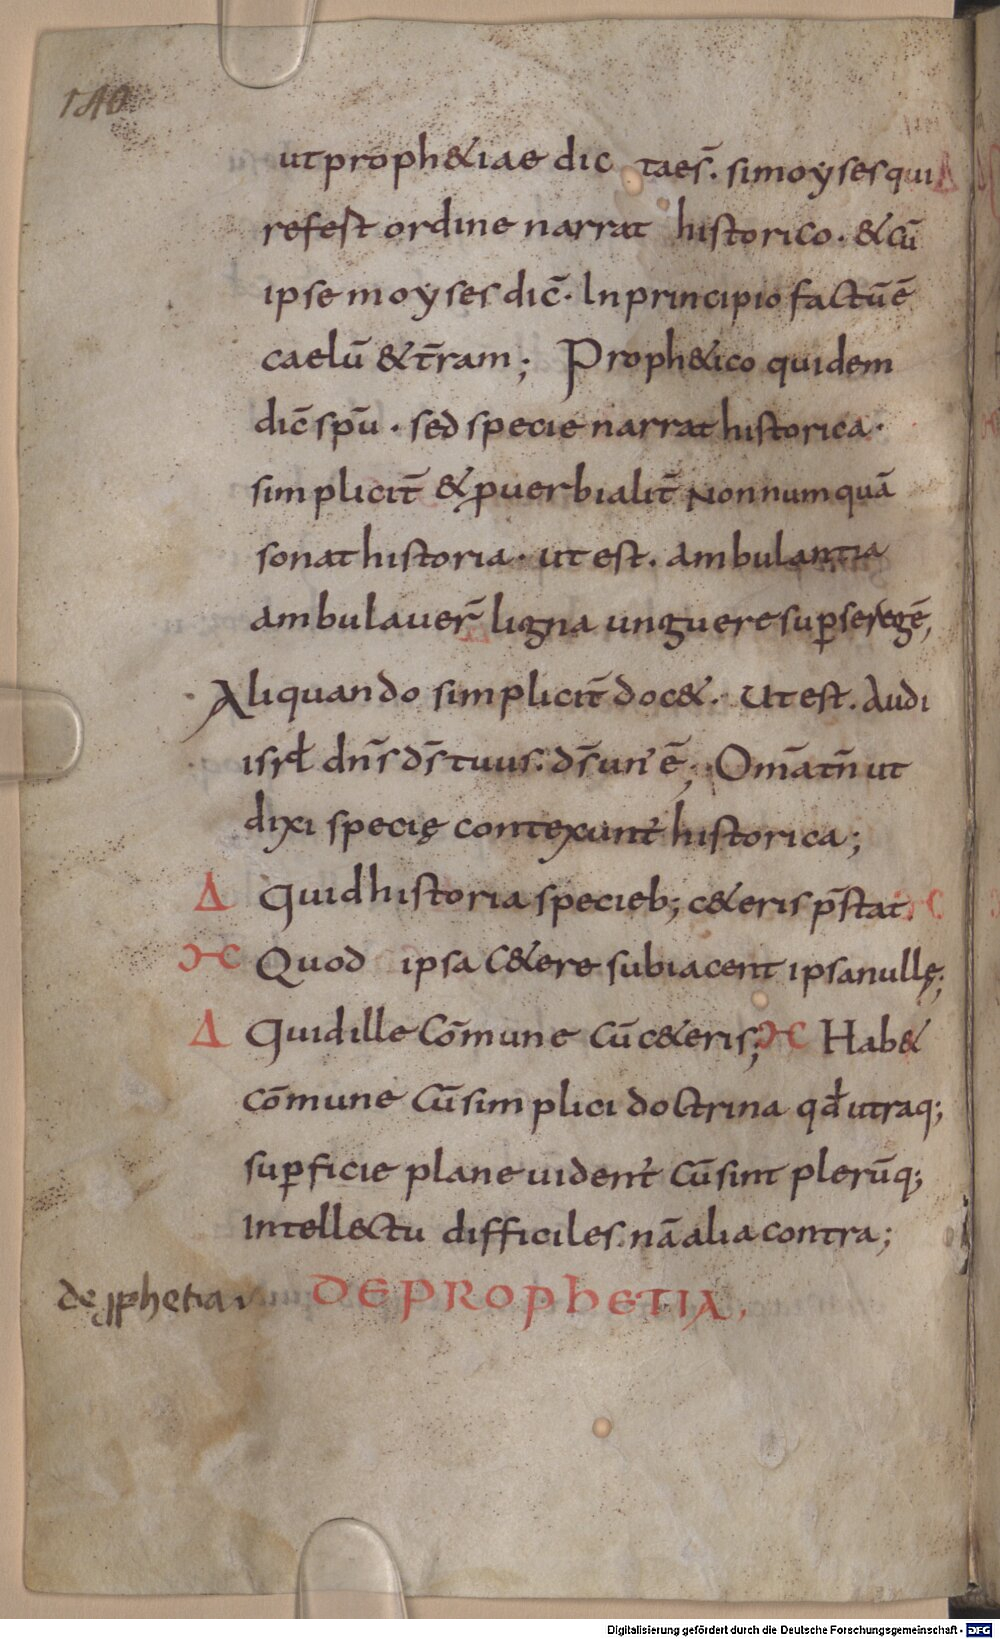 140
ut proph&iae dic taes̄. simoyses qui
refest ordine narrat historico. &cū
ipse moyses dic̄. In principio factū ē
caelū & t̄ram; Proph&ico quidem
dic̄ sp̄u. sed specie narrat historica.
simplicit̄ & ꝓuerbialit̄ Non numquā
sonat historia. ut est. ambulantia
ambulauer̄ ligna unguere suꝑ se regē,
Aliquando simplicit̄ doc&. Ut est. Audi
isrƚ dn̄s ds̄ tuus. ds̄ un' ē; Om̄a tn̄ ut
dixi specię contexunt̄ historica;
Δ Quid historia specieb; c&eris p̄stat.
ϽC Quod ipsa c&ere subiacent ipsa nullę;
Δ Quid ille cōmune cū c&eris; ϽC Hab&
cōmune cū simplici doctrina qđ utraq;
suꝑficie plane uident̄ cū sint plerūq;
Intellectu difficiles. nā alia contra;
de ꝓphetia DE PROPHETIA.
Digitalisierung gefördert durch die Deutsche Forschungsgemeinschaft - DFG